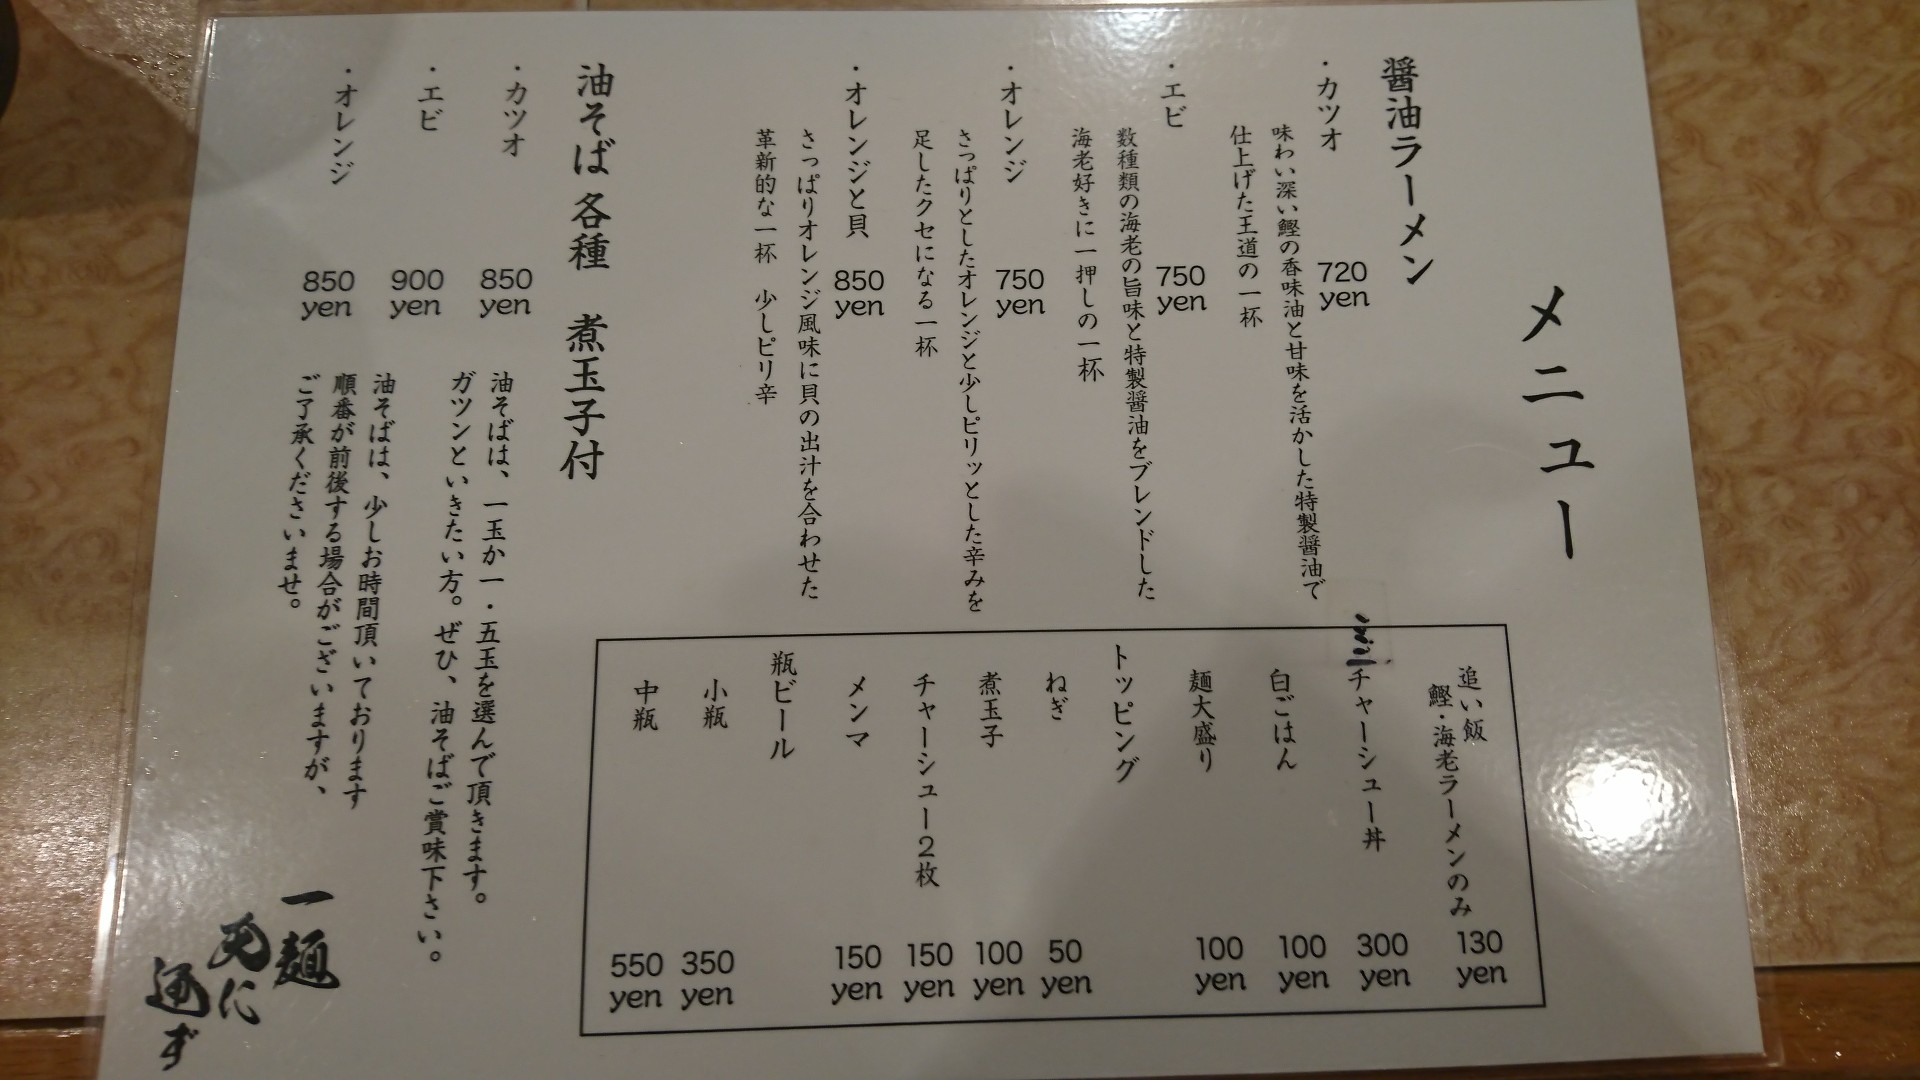 メニュー
醤油ラーメン
・カツオ 720 yen
味わい深い鰹の香味油と甘味を活かした特製醤油で
仕上げた王道の一杯
・エビ 750 yen
数種類の海老の旨味と特製醤油をブレンドした
海老好きに一押しの一杯
・オレンジ 750 yen
さっぱりとしたオレンジと少しピリッとした辛みを
足したクセになる一杯
・オレンジと貝 850 yen
さっぱりオレンジ風味に貝の出汁を合わせた
革新的な一杯 少しピリ辛
油そば 各種 煮玉子付
・カツオ 850 yen
・エビ 900 yen
・オレンジ 850 yen
油そばは、一玉か一・五玉を選んで頂きます。
ガツンといきたい方。ぜひ、油そばご賞味下さい。
油そばは、少しお時間頂いております
順番が前後する場合がございますが、
ご了承くださいませ。
追い飯
鰹・海老ラーメンのみ 130 yen
ミニチャーシュー丼 300 yen
白ごはん 100 yen
麺大盛り 100 yen
トッピング
ねぎ 50 yen
煮玉子 100 yen
チャーシュー2枚 150 yen
メンマ 150 yen
瓶ビール
小瓶 350 yen
中瓶 550 yen
一麺
天に
通ず